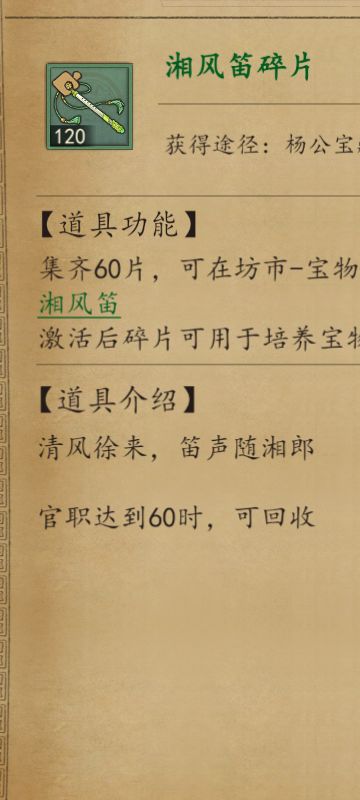 湘风笛碎片
120
获得途径：杨公宝
【道具功能】
集齐60片，可在坊市-宝物
湘风笛
激活后碎片可用于培养宝物
【道具介绍】
清风徐来，笛声随湘郎
官职达到60时，可回收